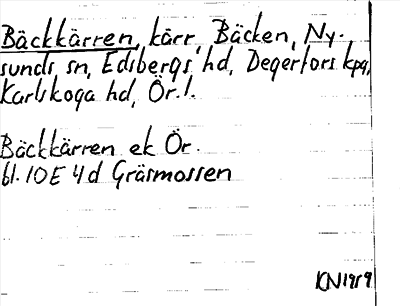 Bäckkärren, kärr, Bäcken, Ny-
sunds sn, Edsbergs hd, Degerfors kpg,
Karlskoga hd, Ör.l.
Bäckkärren ek Ör.
bl. 10E 4d Gräsmossen
KN1959